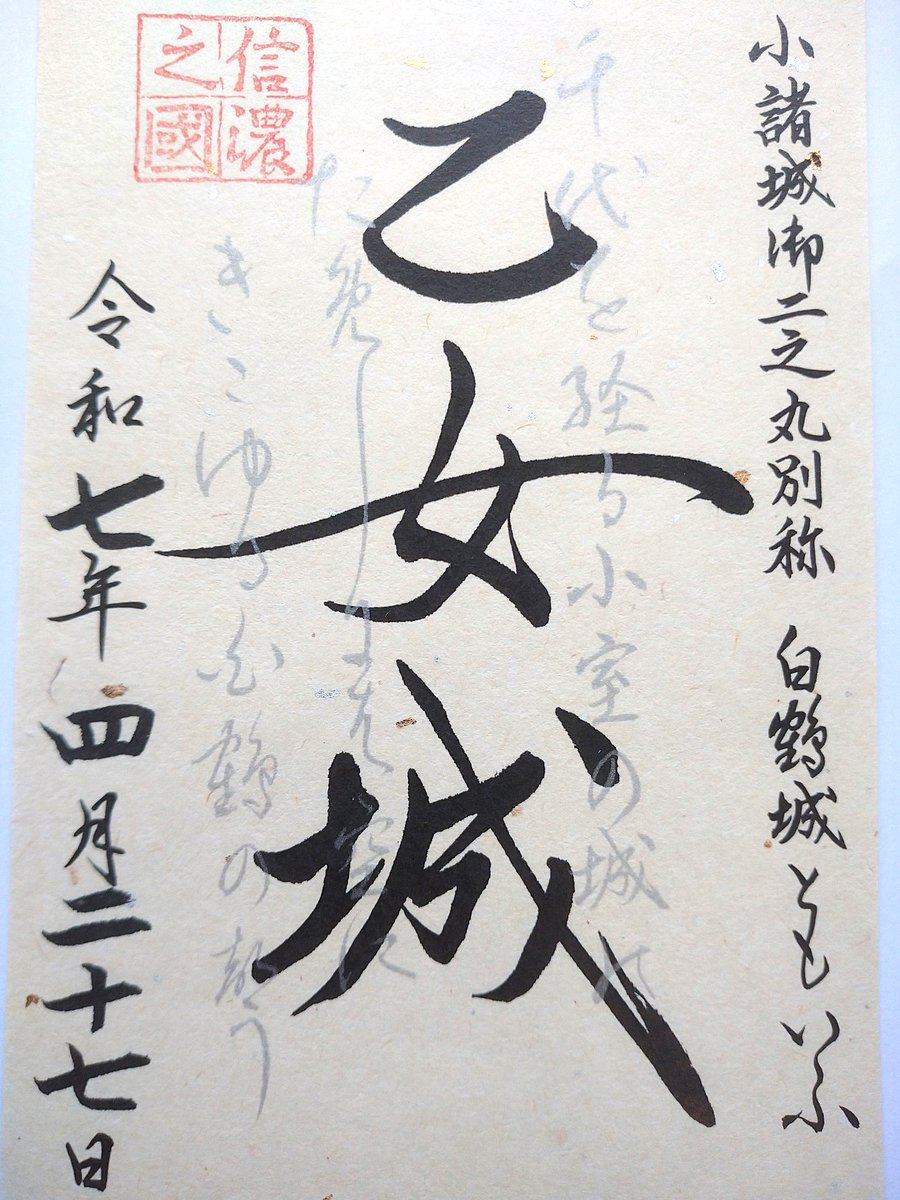 小諸城御二之丸別称 白鶴城ともいふ
千代を経る小室の城
乙女城
空に
きこゆる白鶴の
信濃
之國
令和七年四月二十七日